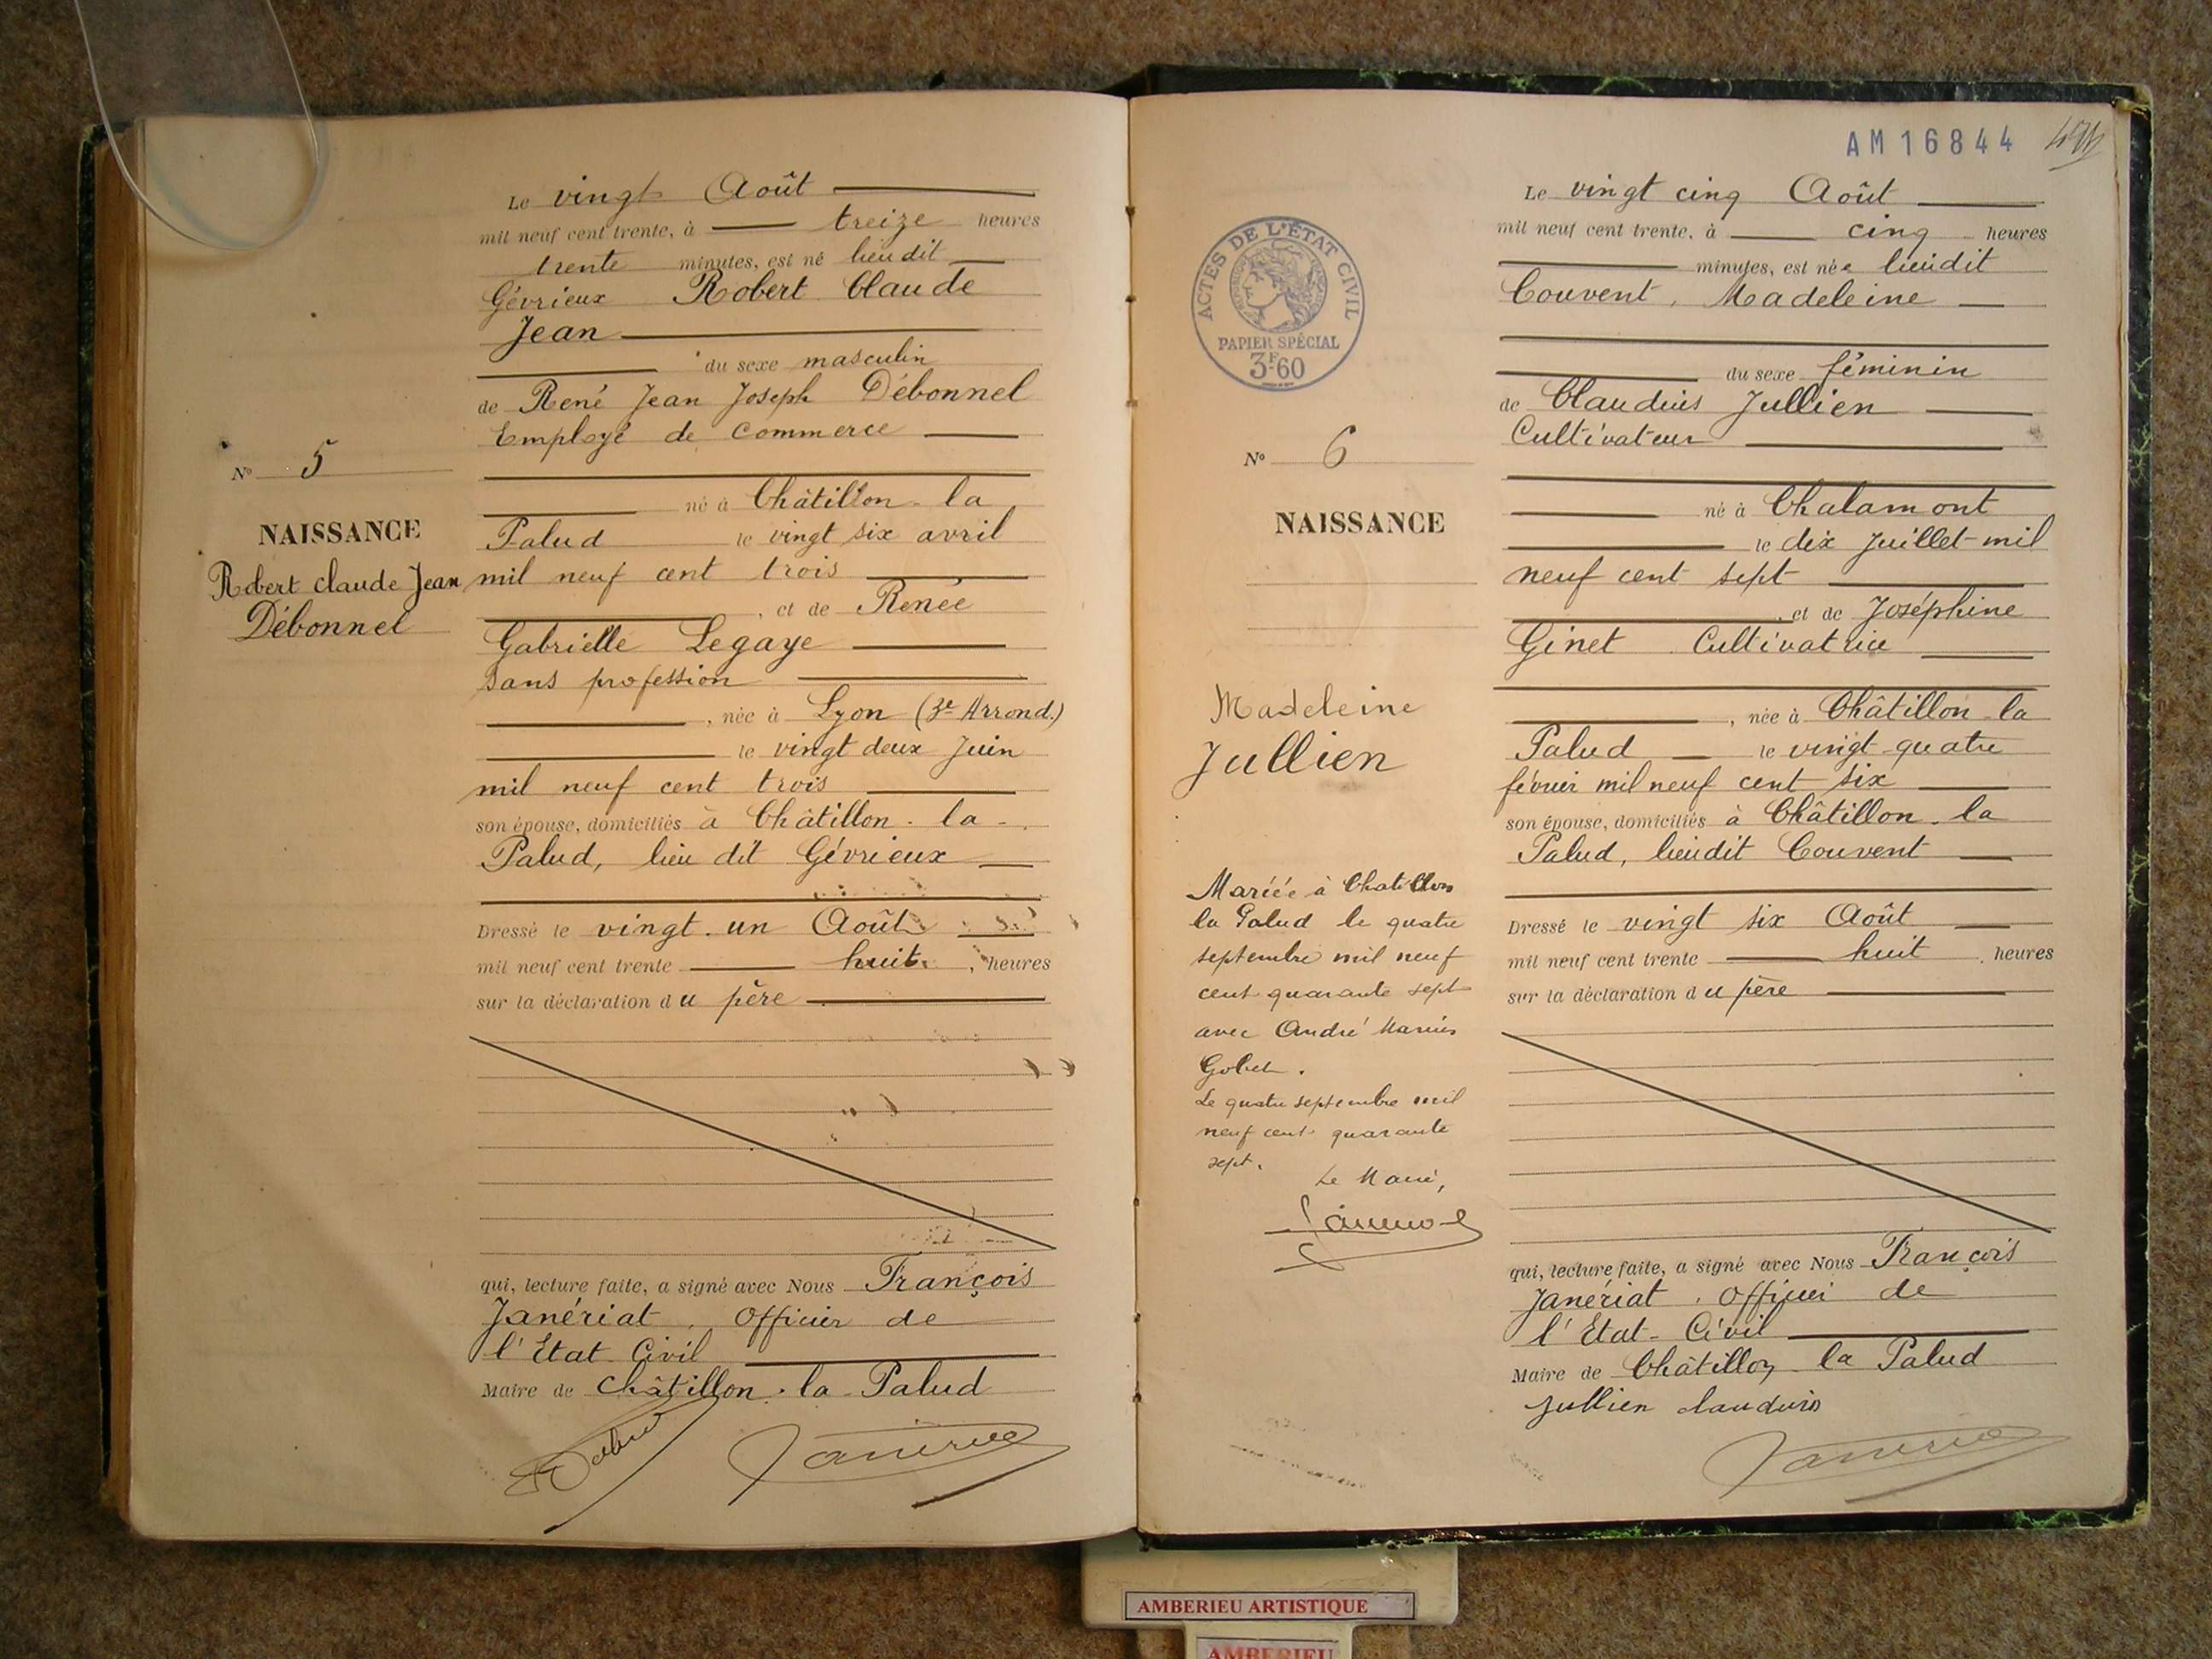 Le vingt Août
mil neuf cent trente, à treize heures
trente minutes, est né lieu dit
Gévrieux Robert Claude
Jean
du sexe masculin
de René Jean Joseph Débonnel
Employé de Commerce
né à Châtillon-la
Palud le vingt six avril
mil neuf cent trois
, et de Renée
Gabrielle Legaye
sans profession
, née à Lyon (3e Arrond.)
le vingt deux Juin
mil neuf cent trois
son épouse, domiciliés à Châtillon-la-
Palud, lieu dit Gévrieux
Dressé le vingt-un Août
mil neuf cent trente huit, heures
sur la déclaration du père
qui, lecture faite, a signé avec Nous François
Janériat, Officier de
l'Etat Civil
Maire de Châtillon-la-Palud
No 5
NAISSANCE
Robert Claude Jean
Débonnel
AM16844
Le vingt cinq Août
mil neuf cent trente, à cinq heures
minutes, est née lieudit
Couvent, Madeleine
du sexe féminin
de Claudius Jullien
Cultivateur
né à Chalamont
le dix Juillet mil
neuf cent sept
, et de Joséphine
Ginet Cultivatrice
, née à Châtillon-la
Palud le vingt-quatre
février mil neuf cent six
son épouse, domiciliés à Châtillon-la
Palud, lieudit Couvent
Dressé le vingt six Août
mil neuf cent trente huit, heures
sur la déclaration du père
qui, lecture faite, a signé avec Nous François
Janériat, Officier de
l'Etat-Civil
Maire de Châtillon-la Palud
Jullien claudius
ACTES DE L'ÉTAT CIVIL
PAPIER SPÉCIAL
3F60
No 6
NAISSANCE
Madeleine
Jullien
Mariée à Chatillon
la Palud le quatre
septembre mil neuf
cent quarante sept
avec André Marius
Gobet.
Le quatre septembre mil
neuf cent quarante
sept.
Le Maire,
AMBERIEU ARTISTIQUE
AMBERIEU